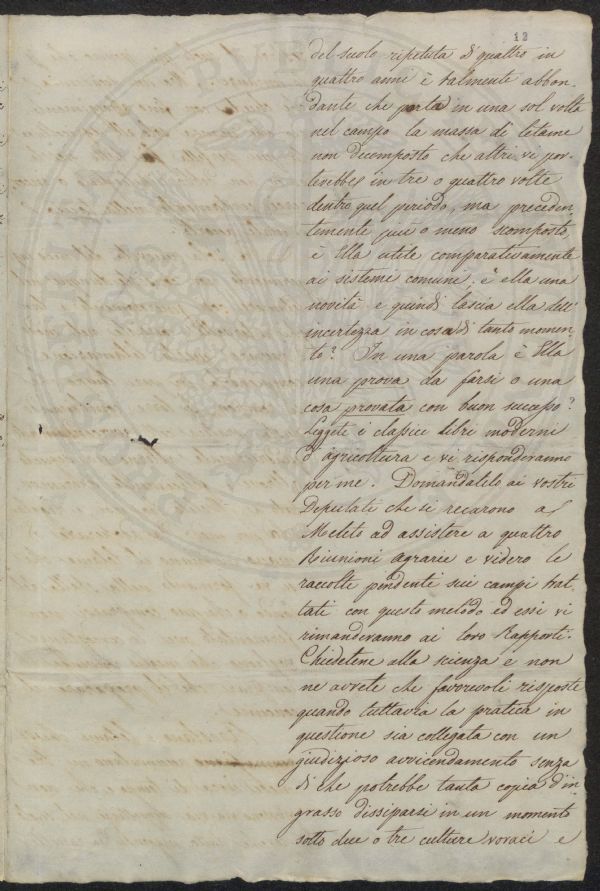 12
del suolo ripetuta di quattro in
quattro anni è talmente abbon,
dante che porta in una sol volta
nel campo la massa di letame
non decomposto che altri vi por,
terebbe in tre o quattro volte
dentro quel periodo, ma preceden,
temente più o meno scomposto,
è Ella utile comparativamente
ai sistemi comuni, è ella una
novità e quindi lascia ella dell'
incertezza in cosa di tanto momen,
to? In una parola è Ella
una prova da farsi o una
cosa provata con buon successo?
Leggete i classici libri moderni
d'agricoltura e vi risponderanno
per me. Domandatelo ai vostri
Deputati che si recarono a
Meleto ad assistere a quattro
Riunioni agrarie e videro le
raccolte pendenti sui campi trat,
tati con questo metodo ed essi vi
rimanderanno ai loro Rapporti.
Chiedetene alla scienza e non
ne avrete che favorevoli risposte
quando tuttavia la pratica in
questione sia collegata con un
giudizioso avvicendamento senza
di che potrebbe tanta copia d'in
grasso dissiparsi in un momento
sotto due o tre culture voraci e